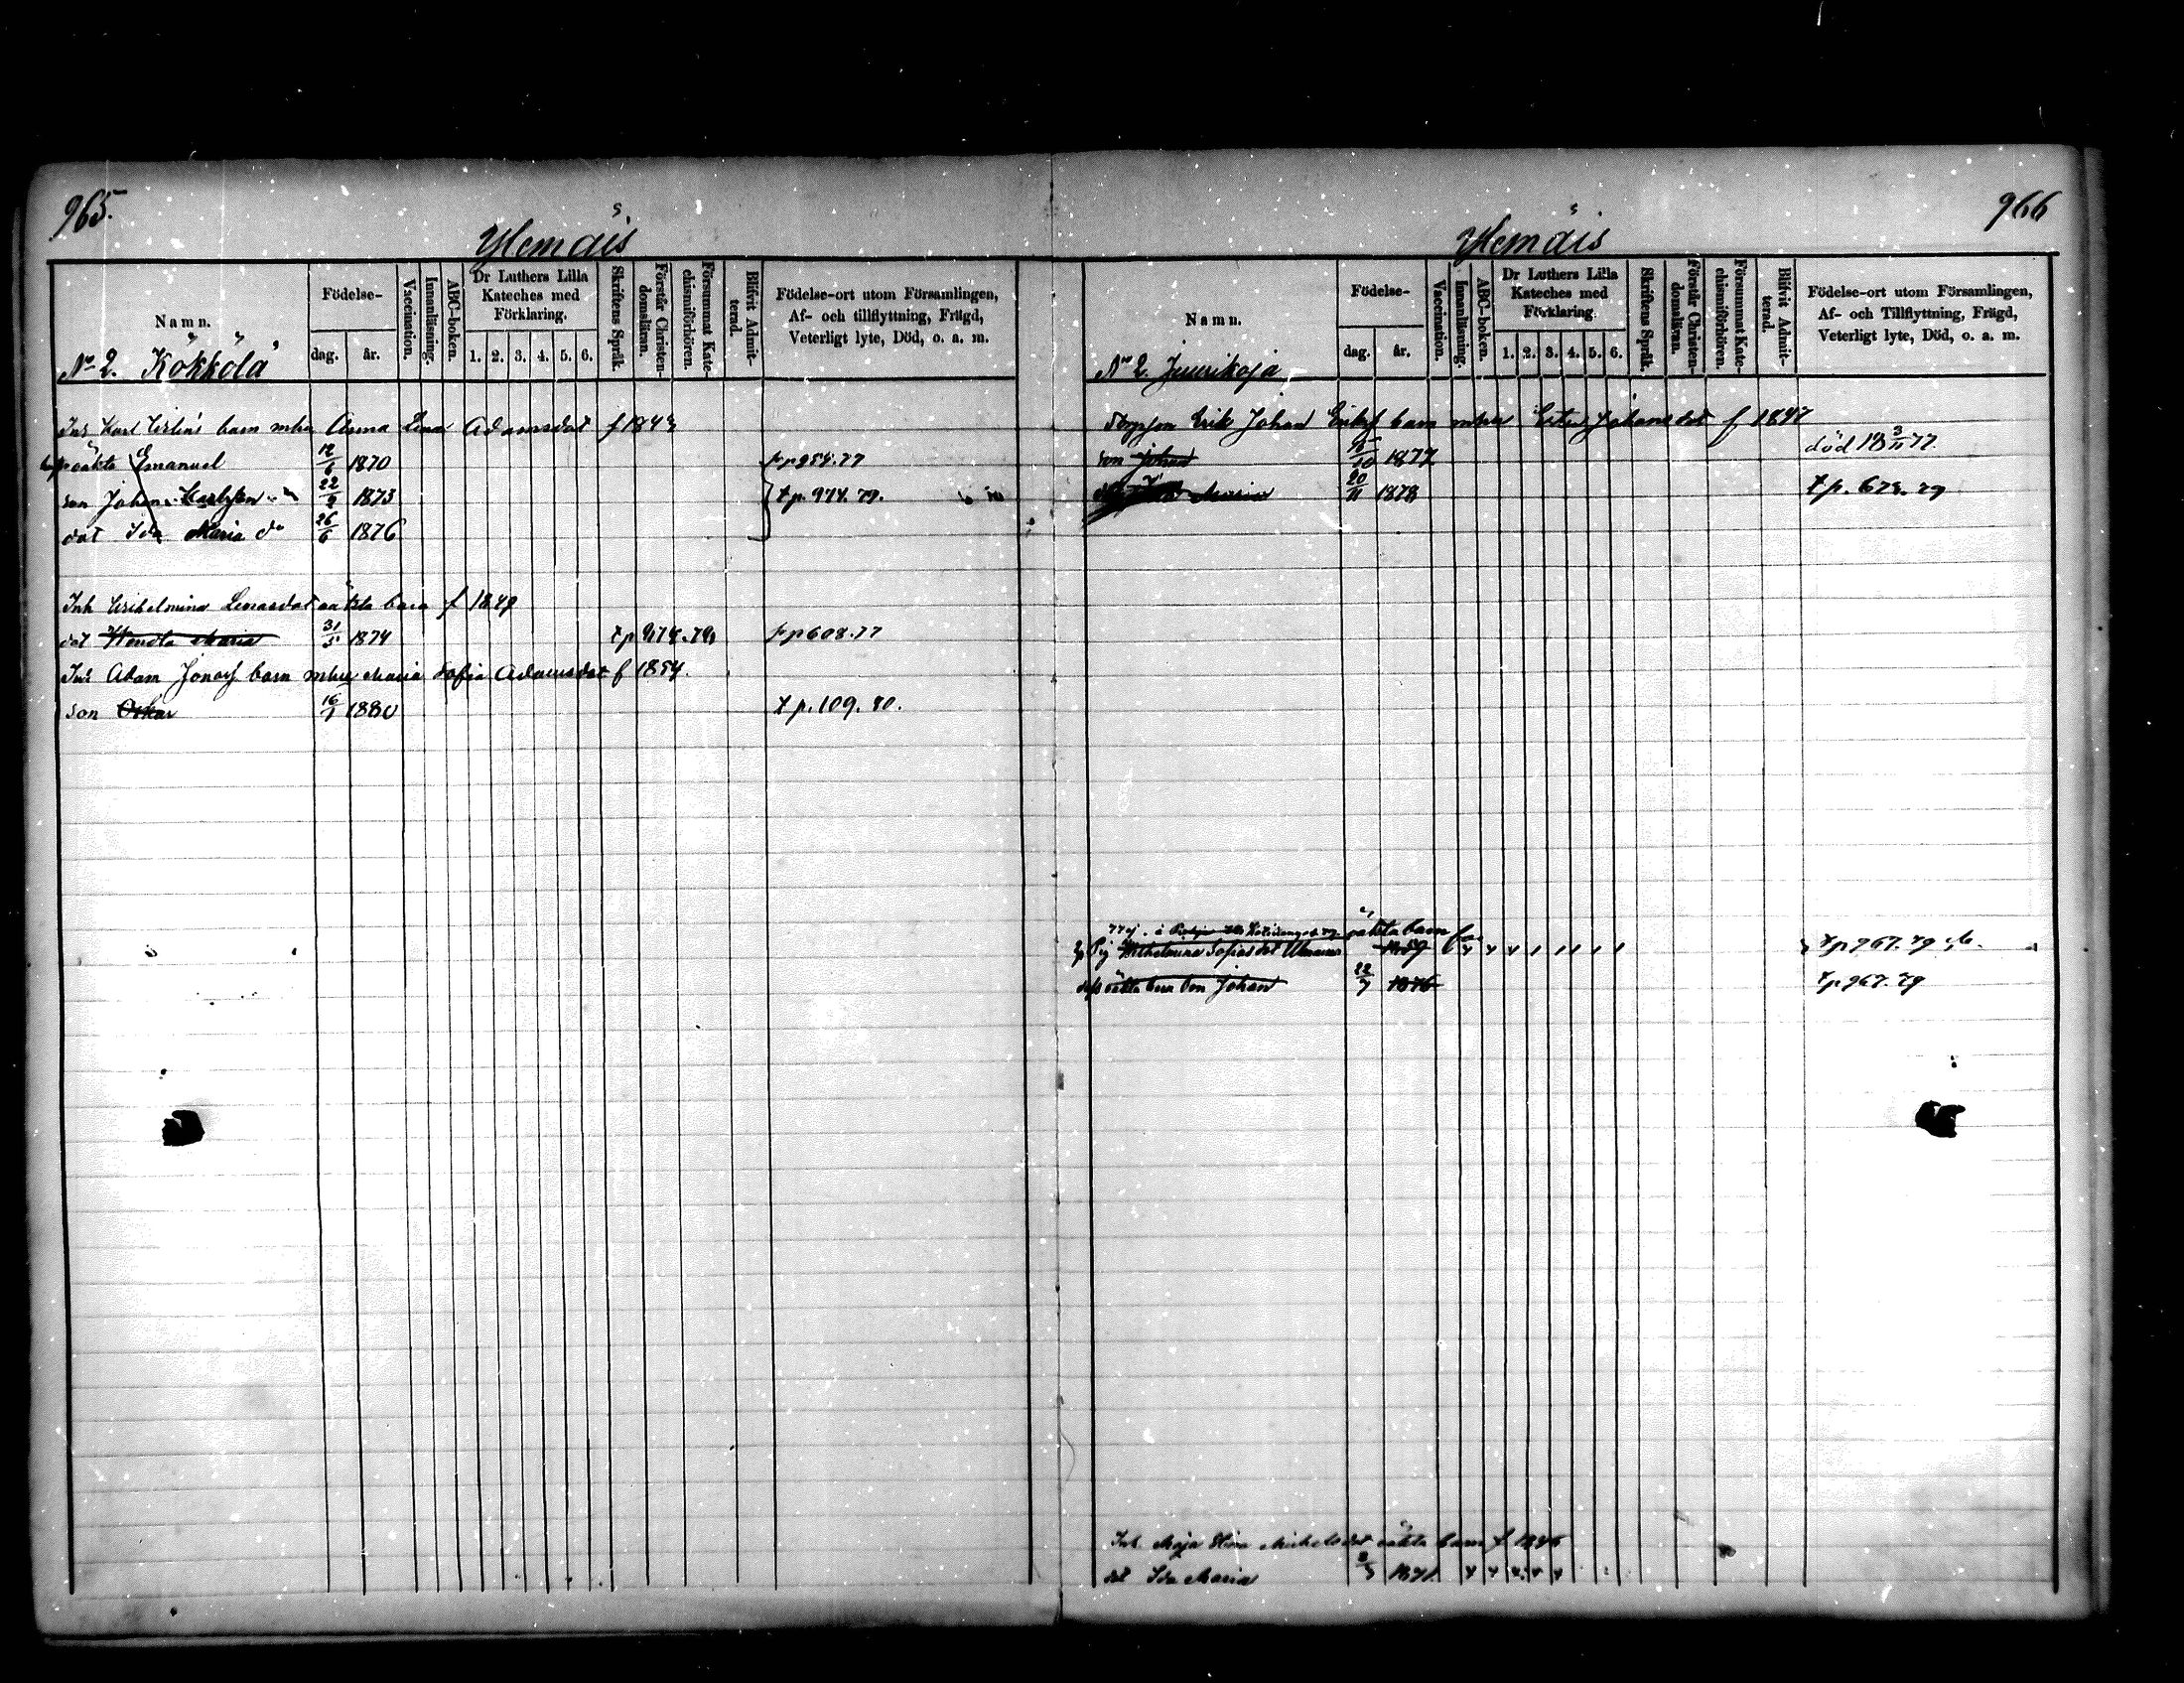 965.
Ylemäis
Namn.
Födelse-
dag. år.
Vaccination.
Innanläsning.
ABC-boken.
Dr Luthers Lilla Kateches med Förklaring.
1. 2. 3. 4. 5. 6.
Skriftens Språk.
Förstår Christendomsläran.
Försummat Katechismiförhören.
Blifvit Admitterad.
Födelse-ort utom Församlingen,
Af- och tillflyttning, Frägd,
Veterligt lyte, Död, o. a. m.
No 2. Kökkölä
Inh Karl barn mhu Anna Lena Adamsdot f 1843
oäkta Emanuel 12/6 1870 954.77
son Johan Karlsson 22/9 1873 t p. 974. 79.
dot Ida Maria do 26/6 1876
Inh Wilhelmina Lenasdot oäkta barn f 1849
dot Wendla Maria 31/5 1874 t p 974.79 608.77
Inh Adam barn mhu Maria Sofia Adamsdot f 1854.
son Oskar 16/1 1880 t p. 109. 80.
966
Ylemäis
Namn.
Födelse-
dag. år.
Vaccination.
Innanläsning.
ABC-boken.
Dr Luthers Lilla Kateches med Förklaring.
1. 2. 3. 4. 5. 6.
Skriftens Språk.
Förstår Christendomsläran.
Försummat Katechismiförhören.
Blifvit Admitterad.
Födelse-ort utom Församlingen,
Af- och Tillflyttning, Frägd,
Veterligt lyte, Död, o. a. m.
No 2. Juurikoja
Erik Johan barn mhu Johansdot f 1847
son Johan 1877 död 3/11 77.
Maria 20/11 1878 t p. 673. 79
oäkta barn
Wilhelmina Sofiasdot 1859 t p 967. 79
oäkta barn Johan 22/7 1876 t p 967. 79
Inh Maja Michelsdot oäkta barn f
dot Ida Maria 1871